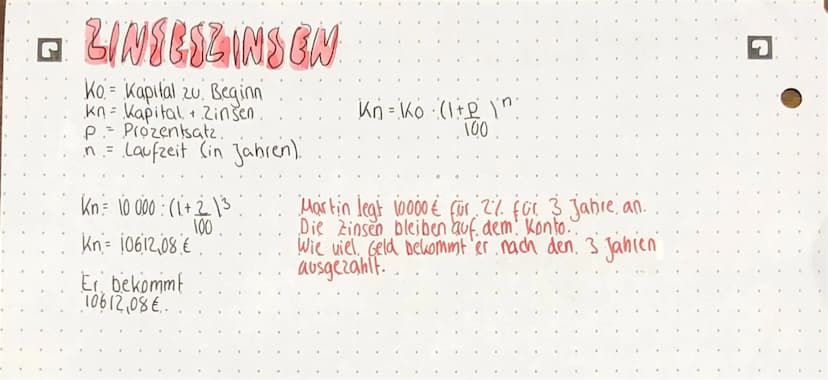 ZINSESZINSEN
Ko = Kapital zu Beginn
kn = Kapital + Zinsen
p = Prozentsatz
n = Laufzeit (in Jahren)
Kn = Ko · (1+p/100)^n
Kn = 10 000 · (1+2/100)^3
Kn = 10612,08 €
Er bekommt
10612,08 €.
Martin legt 10000 € für 2% für 3 Jahre an.
Die Zinsen bleiben auf dem Konto.
Wie viel Geld bekommt er nach den 3 Jahren
ausgezahlt.